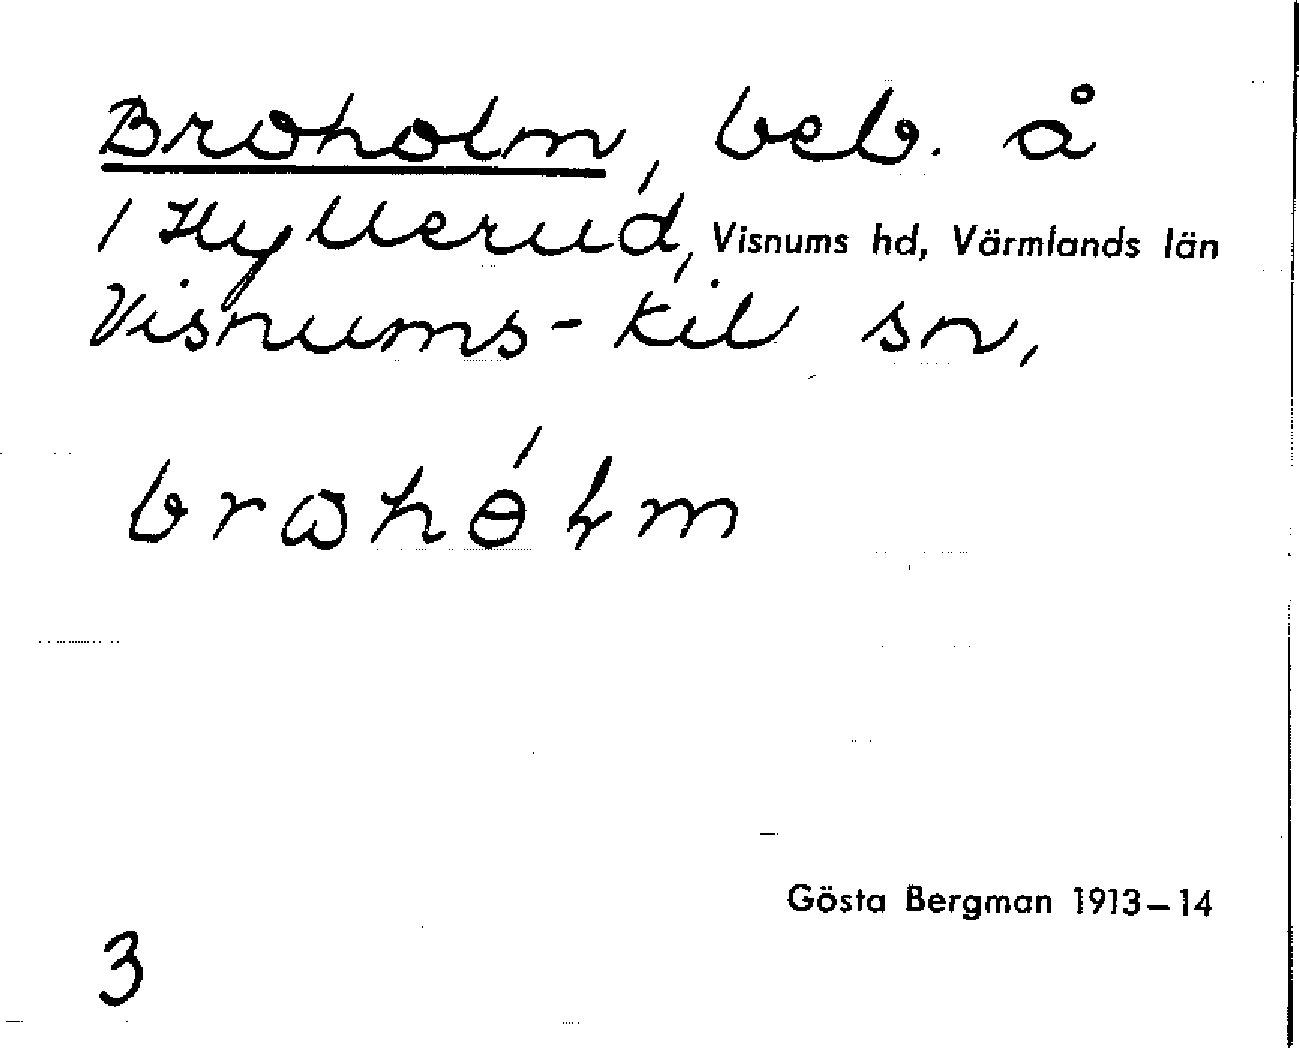 Broholm, beb. å
/ Hyllerud, Visnums hd, Värmlands län
Visnums-Kil sn,
Gösta Bergman 1913–14
3